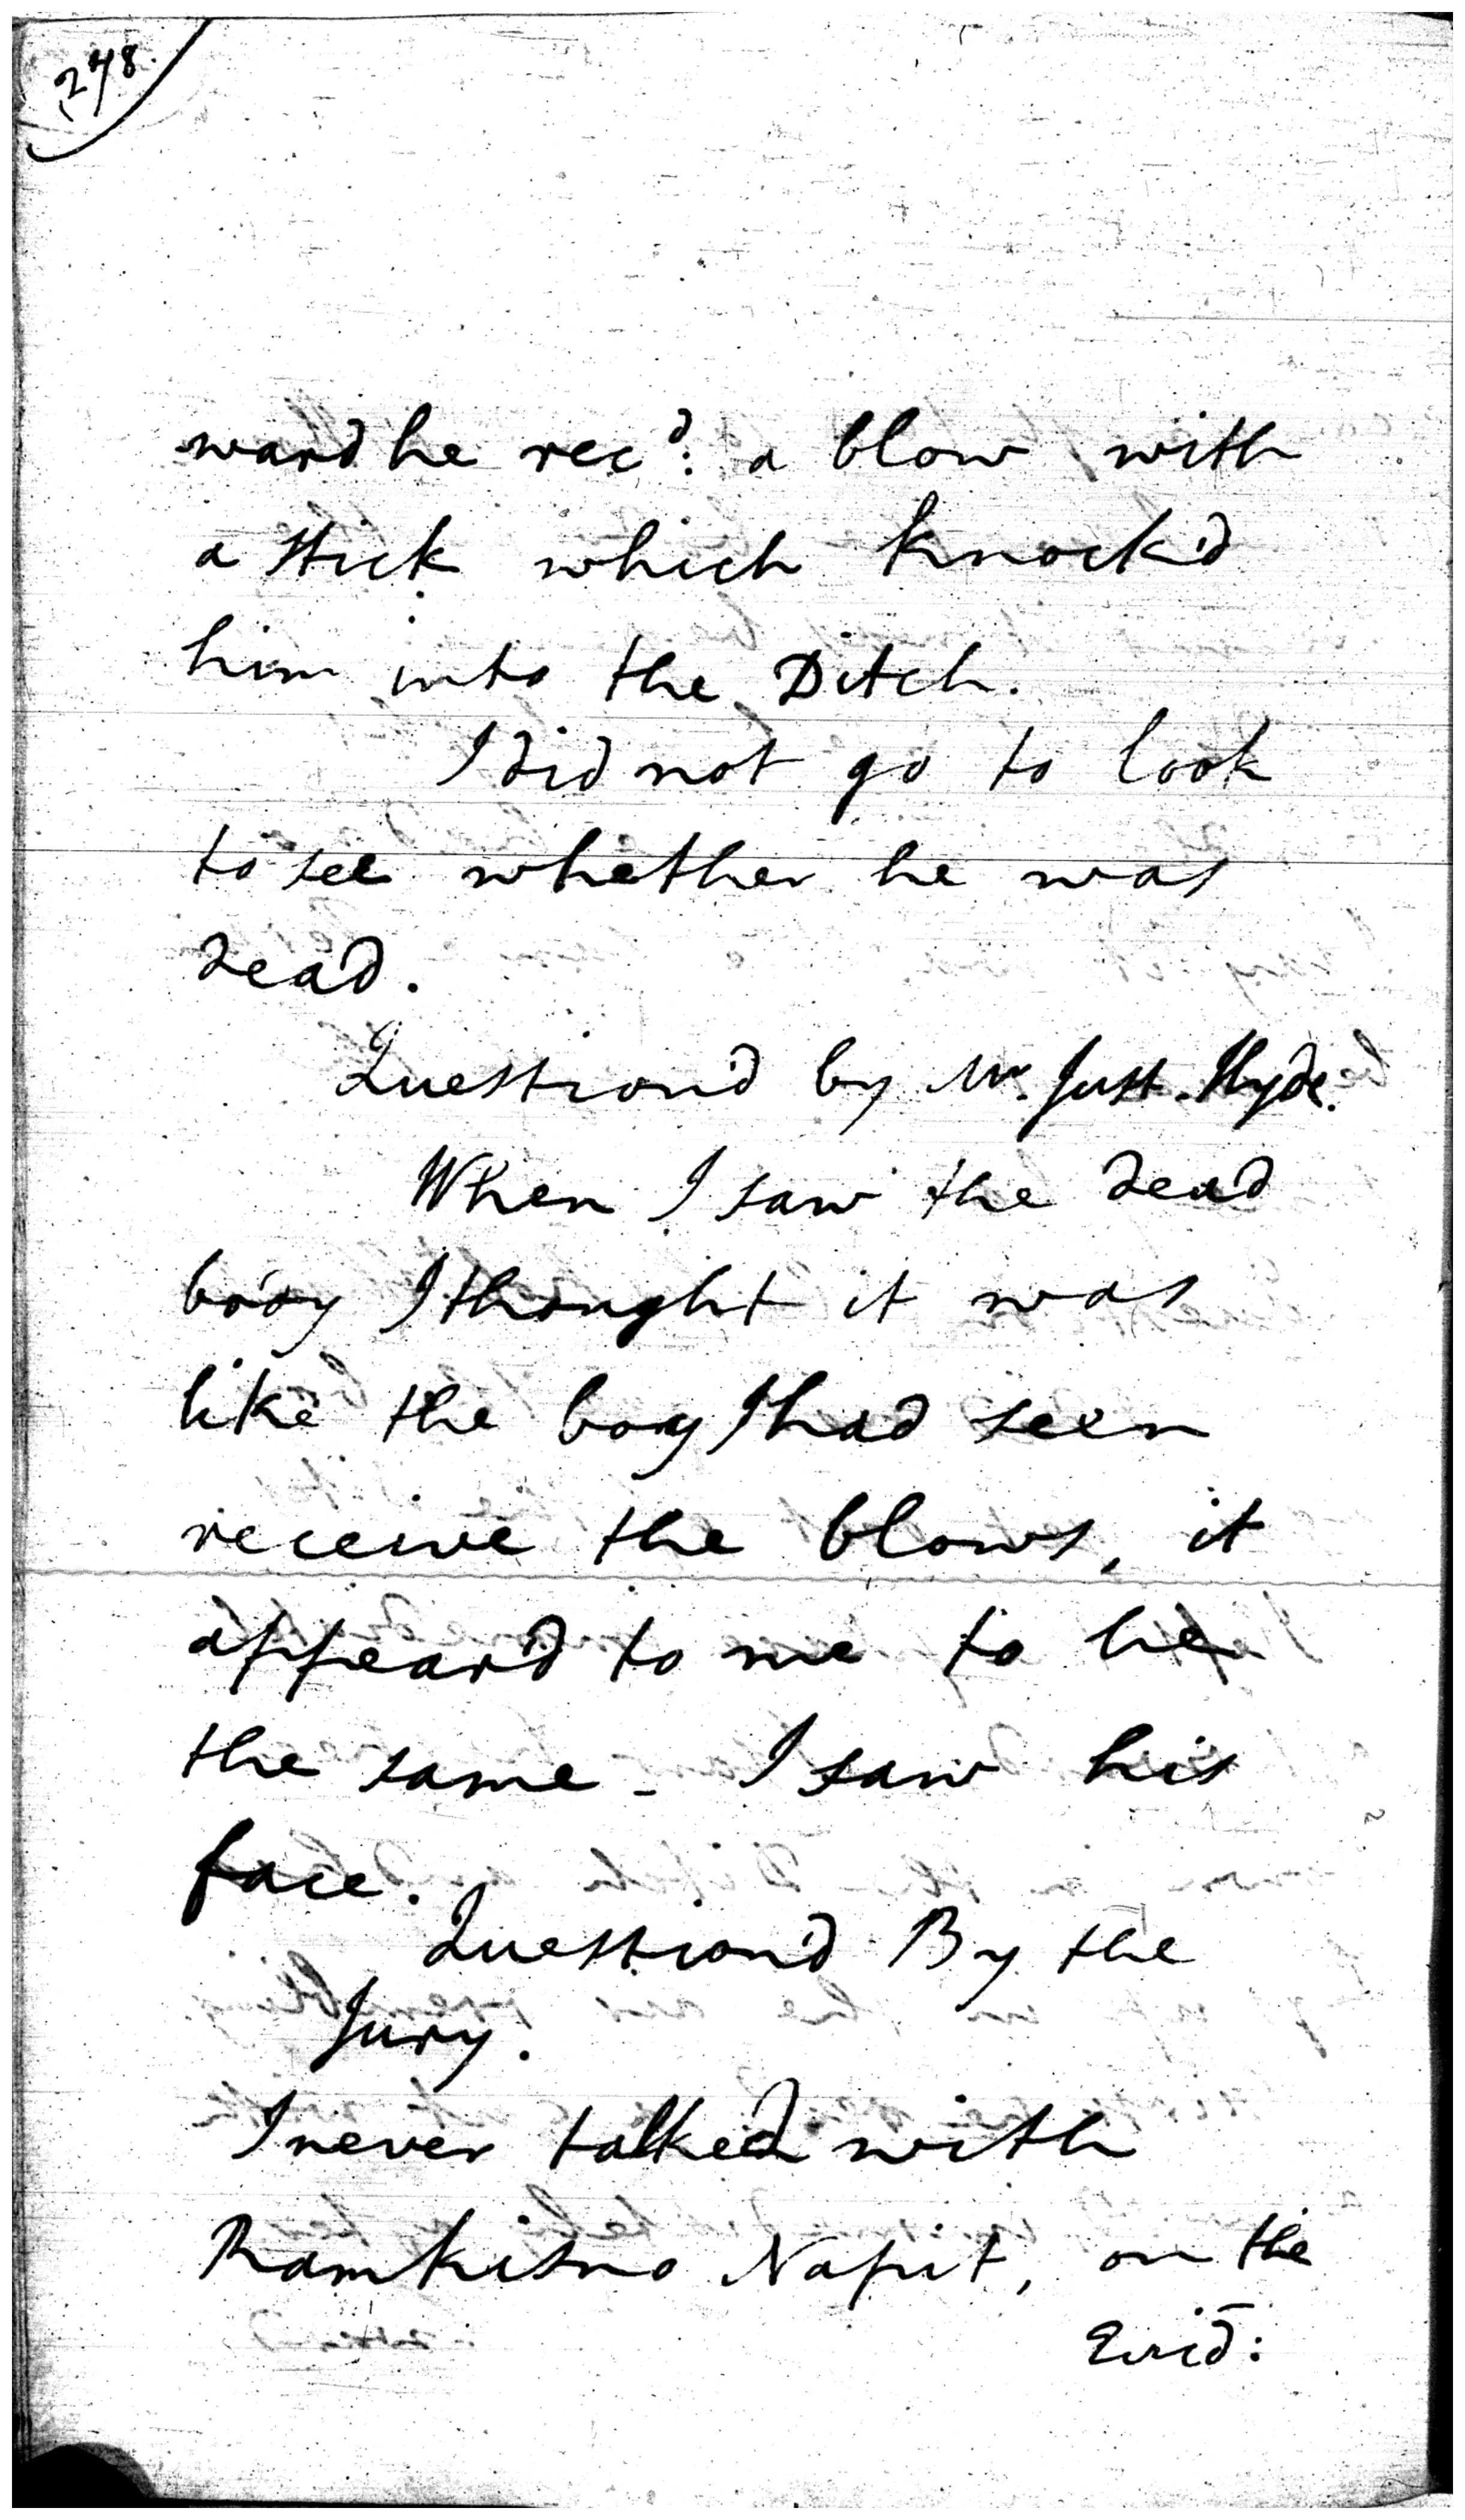 248.
ward he recd. a blow with
a stick which knock'd
him into the Ditch.
I did not go to look
to see whether he was
dead.
Question'd by Mr. Just. Hyde.
When I saw the dead
body I thought it was
like the boy I had seen
receive the blows, it
appear'd to me to be
the same - I saw his
face.
Question'd By the
Jury.
I never talked with
Ramkisno Napit, on the
Evid: